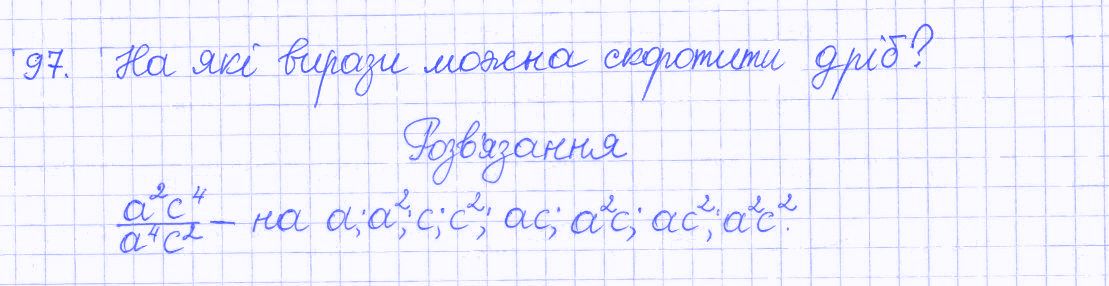 97. На які вирази можна скоротити дріб?
Розв'язання
a²c⁴/a⁴c² – на a; a²; c; c²; ac; a²c; ac²; a²c².